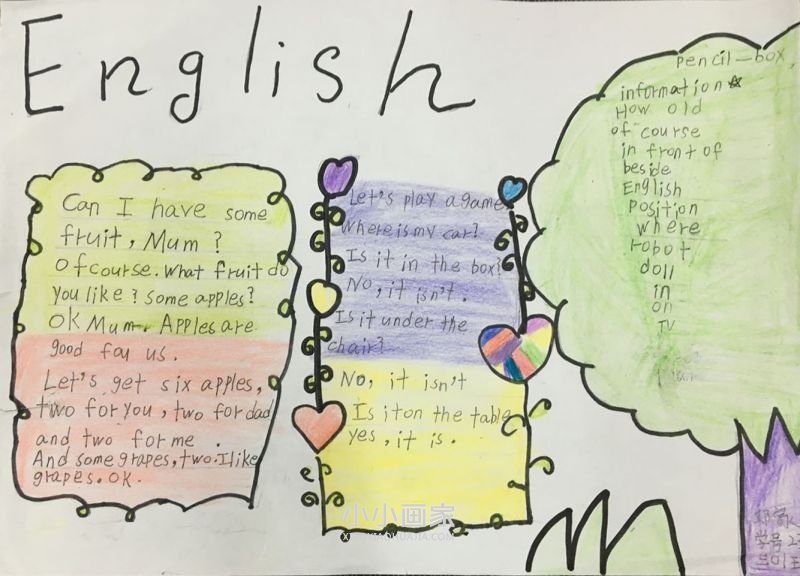 English
Can I have some
fruit, Mum?
Of course. What fruit do
you like? some apples?
OK Mum. Apples are
good fou us.
Let's get six apples,
two for you, two for dad
and two for me.
And some grapes, two. I like
grapes. OK.
Let's play a game
Where is my car?
Is it in the box?
No, it isn't.
Is it under the
chair?
No, it isn't
Is it on the table
yes, it is.
pencil-box,
information
How old
of course
in front of
beside
English
position
where
robot
doll
in
on
TV
小小画家
学号2